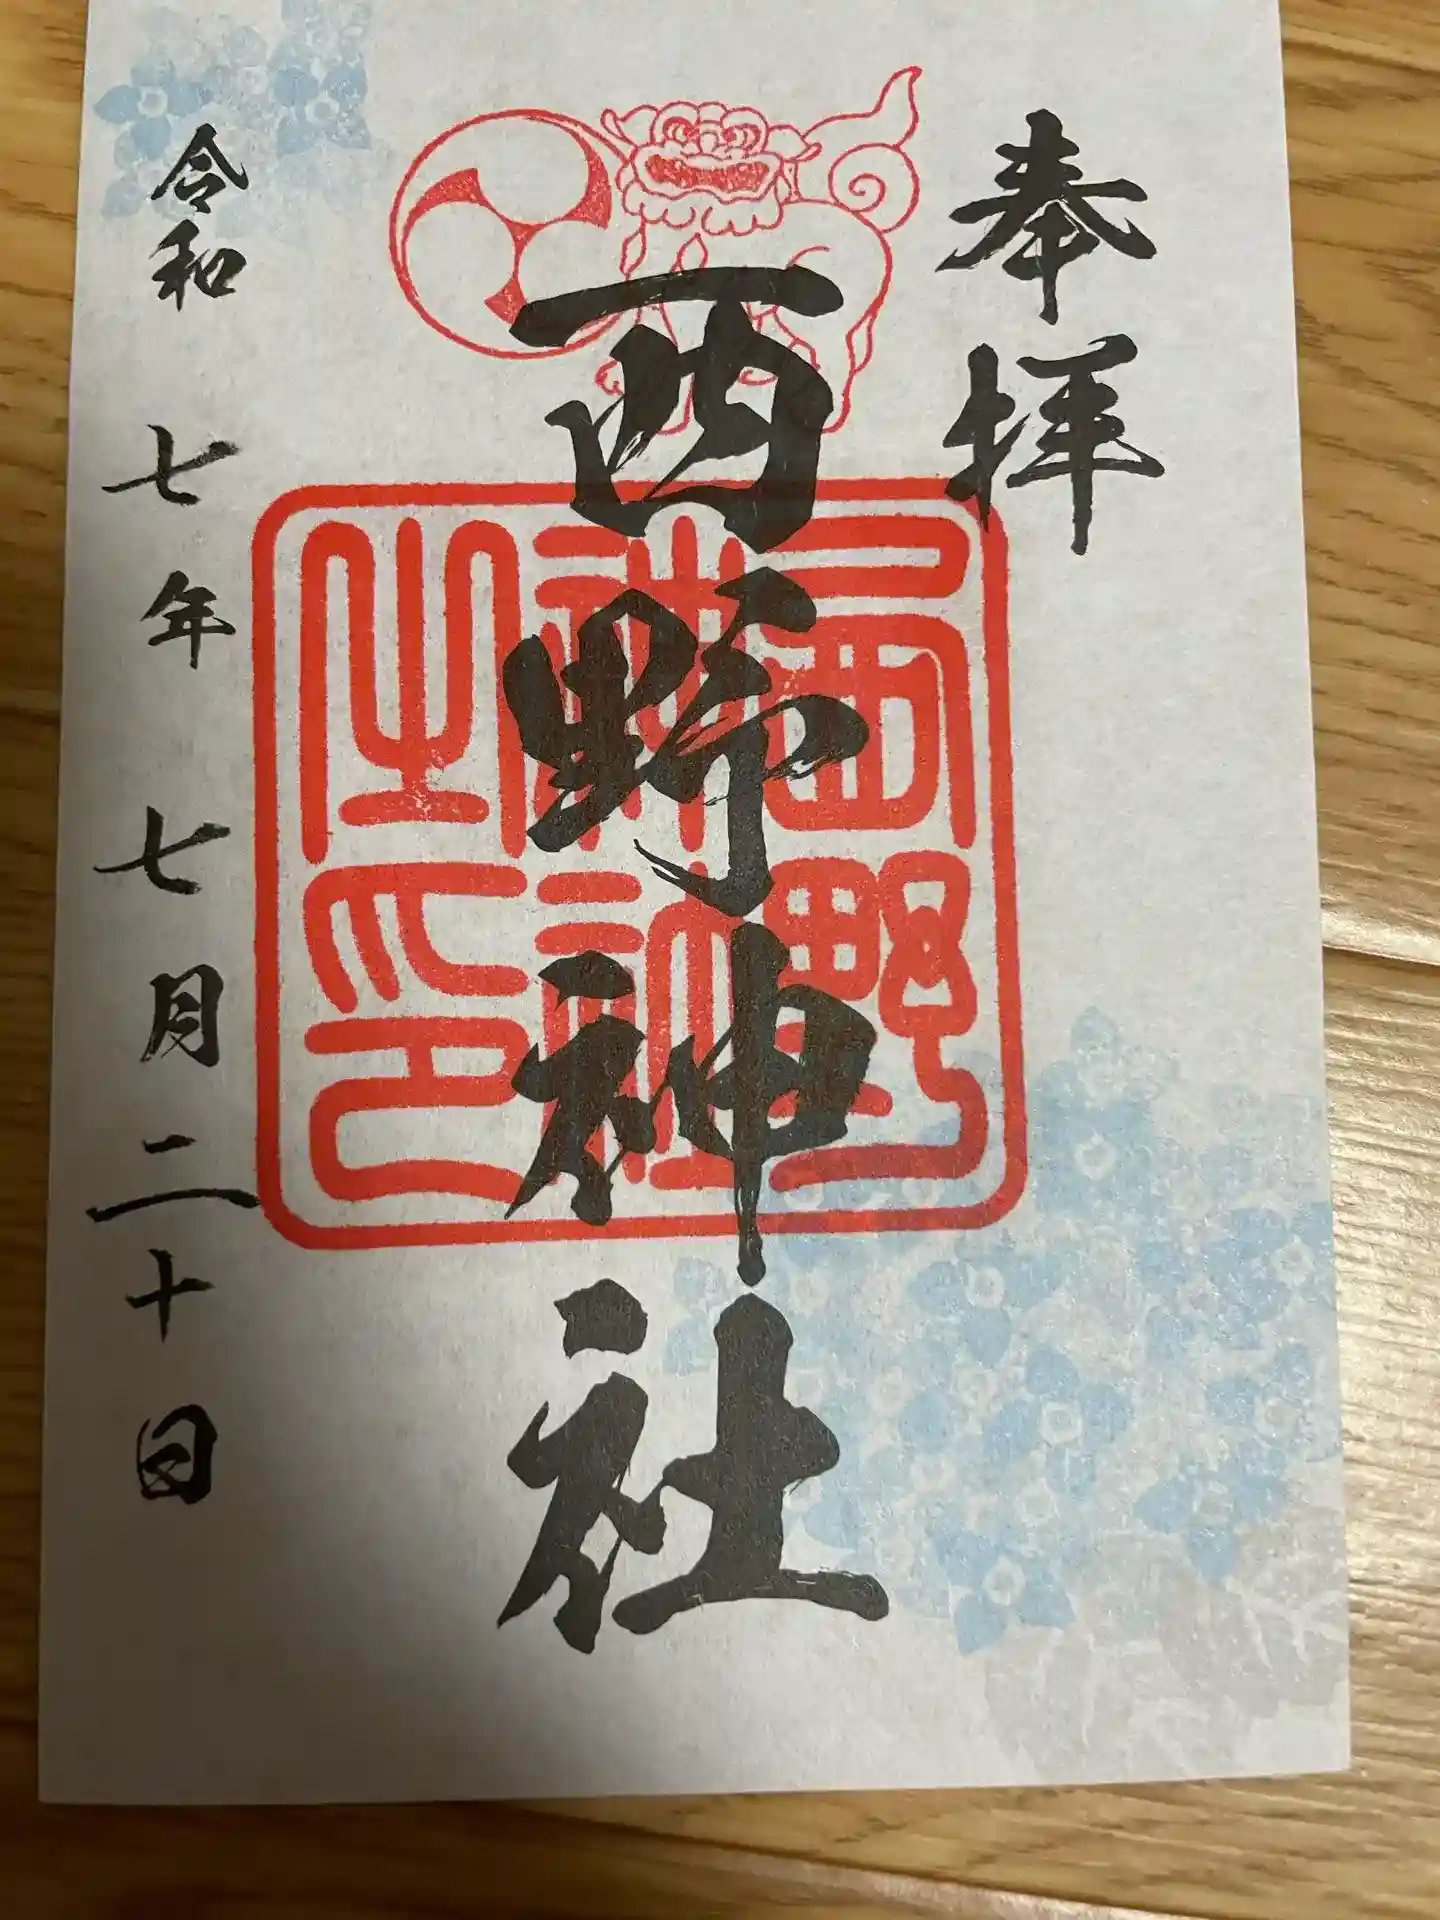 奉拝
西野神社
西野神社之印
令和七年七月二十日